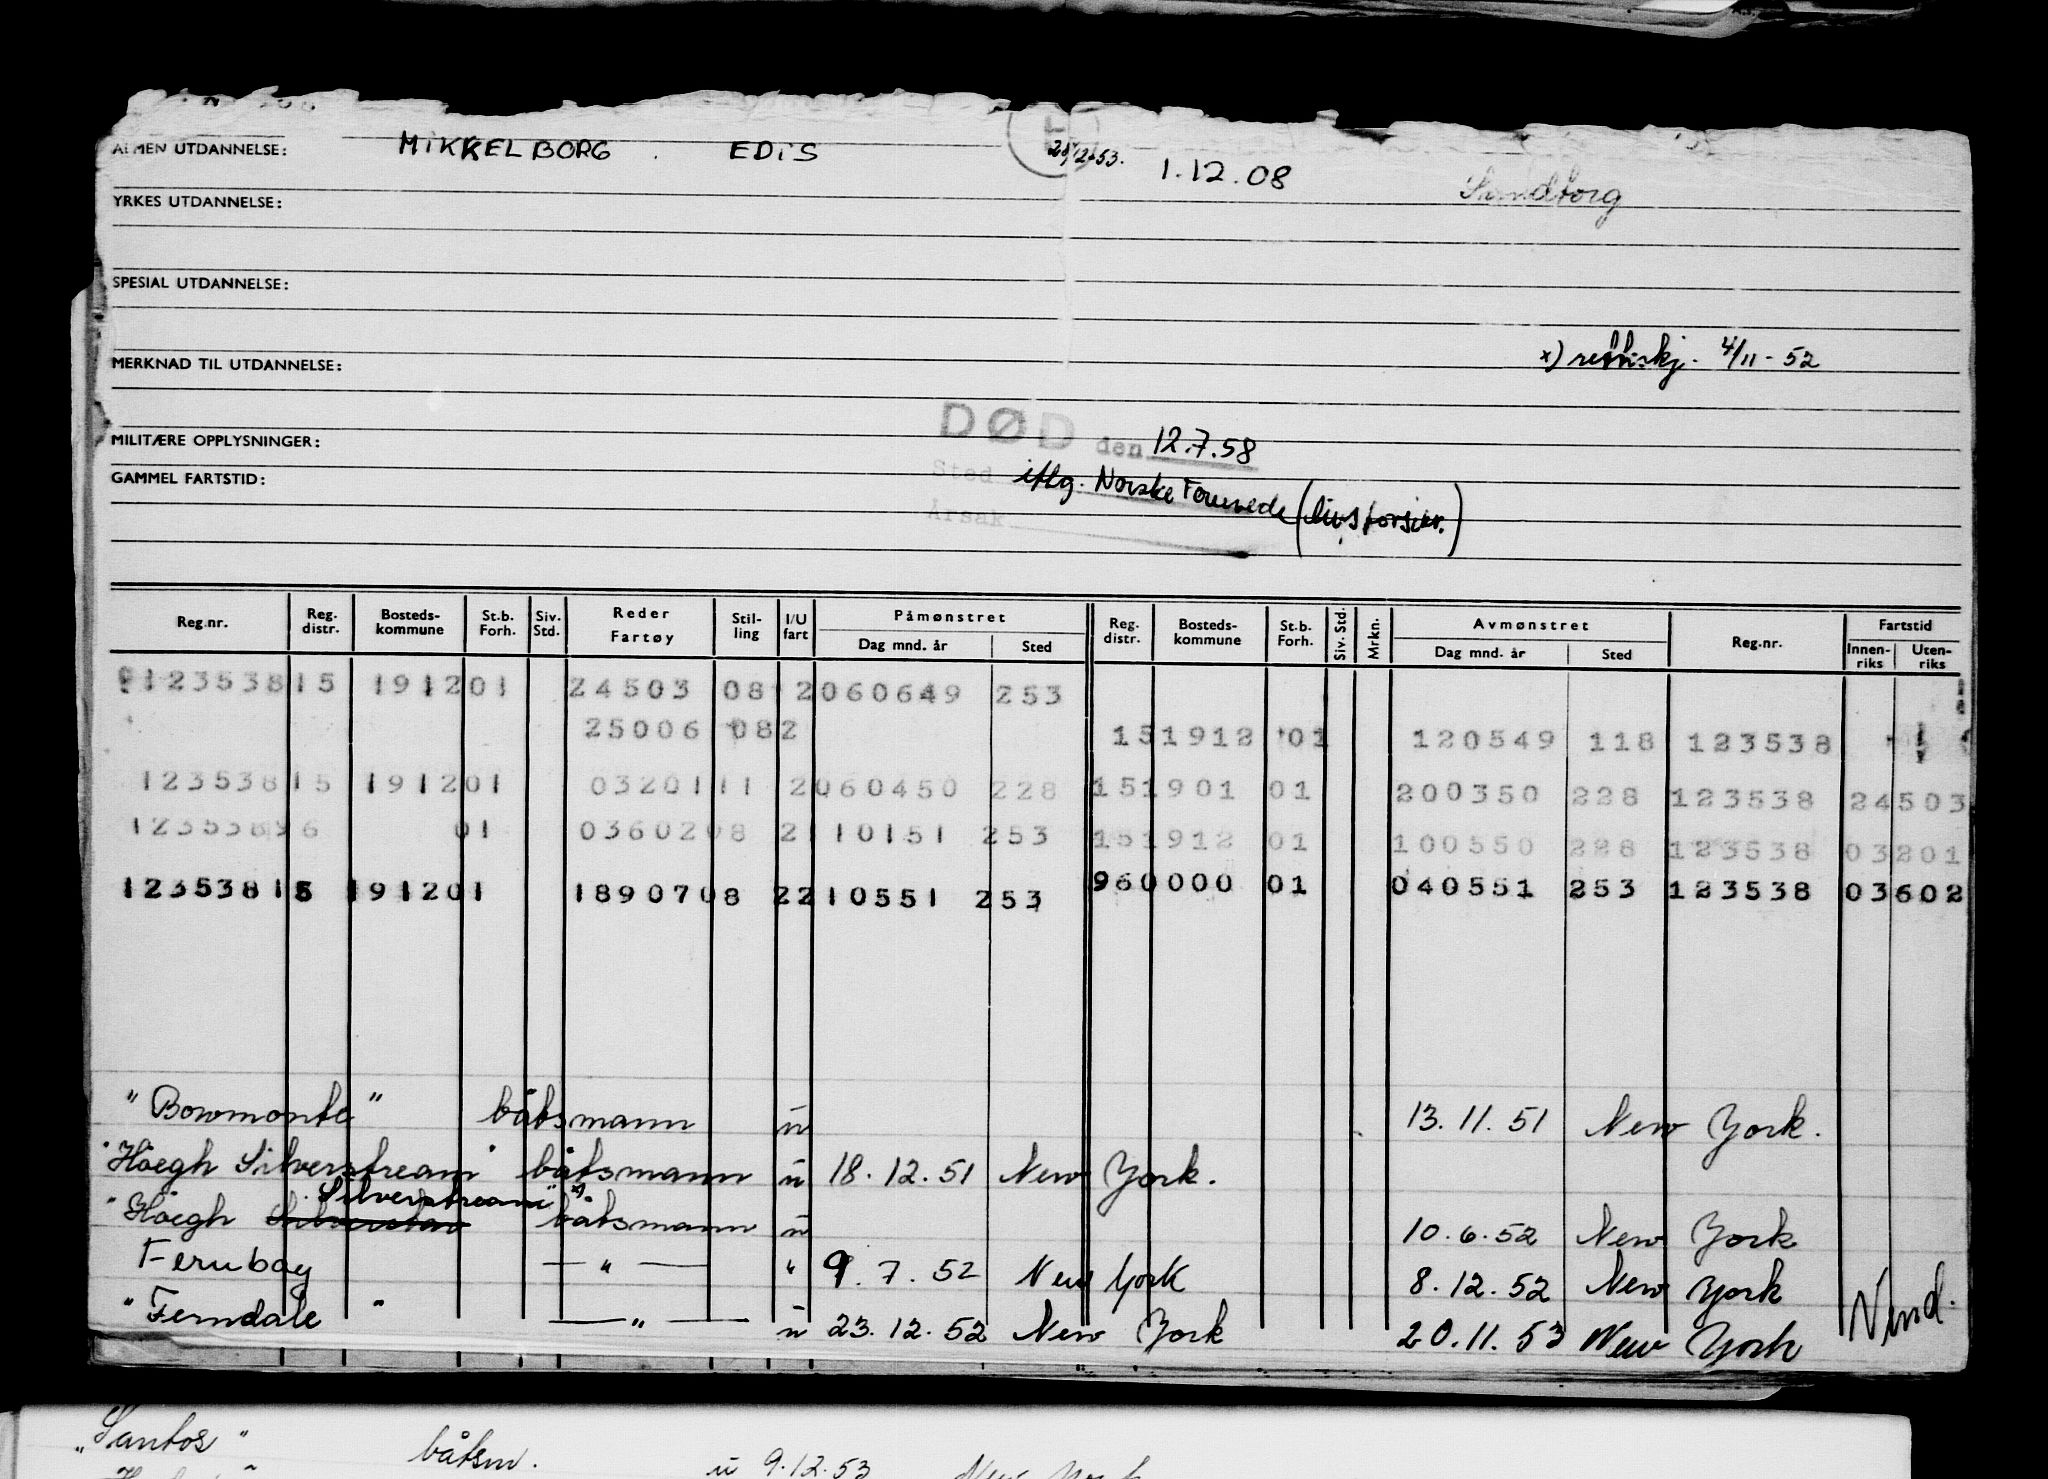 ALMEN UTDANNELSE: MIKKELBORG. EDIS 28/12-53. 1.12.08 Sandtorg
YRKES UTDANNELSE:
SPESIAL UTDANNELSE:
MERKNAD TIL UTDANNELSE: x) rettskj. 4/11-52
MILITÆRE OPPLYSNINGER: DØD den 12.7.58
GAMMEL FARTSTID: Sted iflg. Norske Forenede (livsforsikr.)
Årsak
Reg.nr. Reg. distr. Bosteds-kommune St.b. Forh. Siv. Std. Reder Fartøy Stil-ling I/U fart Påmønstret Dag mnd. år Sted Reg. distr. Bosteds-kommune St.b. Forh. Siv. Std. Mrkn. Avmønstret Dag mnd. år Sted Reg.nr. Fartstid Innen-riks Uten-riks
123538 15 1912 01 24503 08 2 060649 253
25006 08 2 15 1912 01 120549 118 123538
123538 15 1912 01 03201 11 2 060450 228 15 1901 01 200350 228 123538 24503
123538 96 01 03602 08 2 110151 253 15 1912 01 100550 228 123538 03201
123538 15 1912 01 18907 08 2 210551 253 96 0000 01 040551 253 123538 03602
"Bowmonte" båtsmann u 13.11.51 New York.
"Höegh Silverstream" båtsmann u 18.12.51 New York.
Silverstream" x)
"Höegh båtsmann u 10.6.52 New York
Fernbay — " — " 9.7.52 New York 8.12.52 New York
"Ferndale" — " — u 23.12.52 New York 20.11.53 New York Vend.
"Santos" båtsm. u 9.12.53 New York